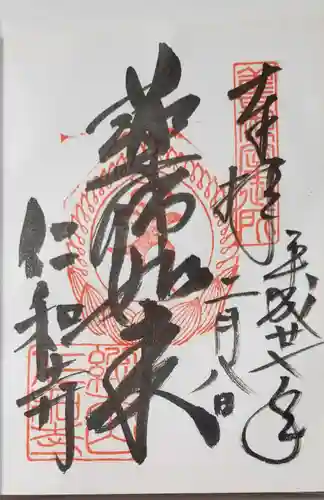 奉拝
平成廿七年
二月八日
薬師如来
仁和寺